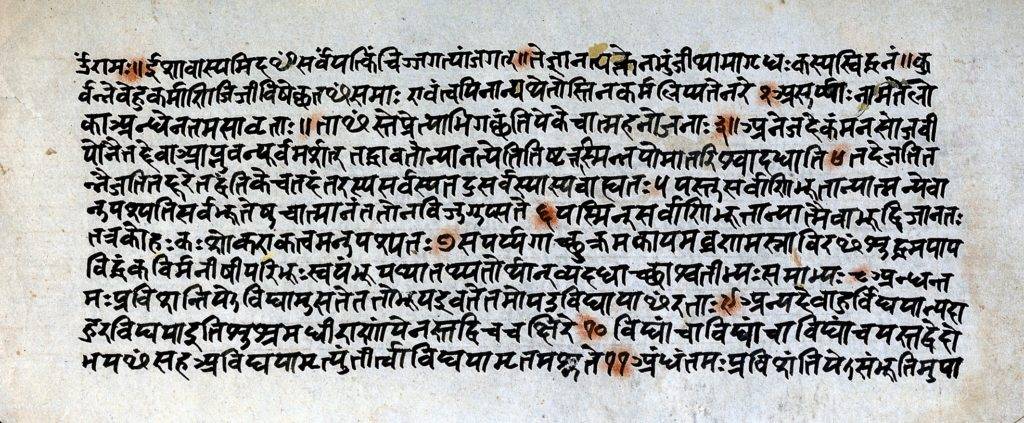 ईरामः॥ईशावास्यमिदꣳसर्वंयत्किंचिज्जगत्यांजगत्॥तेज्ञानत्यक्तेनभुंजीथामागृधःकस्यस्विद्धनं॥कु
र्वन्नेवेहकर्माणिजिजीविषेच्छतꣳसमाः एवंत्वयिनान्यथेतोस्तिनकर्मलिप्यतेनरे २असुर्य्याःनामतेलो
काअन्धेनतमसावृताः॥ताꣳस्तेप्रेत्याभिगछंतियेकेचात्महनोजनाः३॥अनेजदेकंमनसोजवी
योनैतद्देवाआप्नुवन्पूर्वमर्शत् तद्धावतोन्यानत्येतितिष्टत्तस्मिन्नपोमातरिश्वादधाति ४तदेजतित
न्नैजतितद्दूरेतद्वंतिकेचतदंतरस्यसर्वस्यतदुसर्वस्यास्यवाह्यतः५ यस्तुसर्वाणिभूतान्यात्मन्येवा
नुपश्यतिसर्वभूतेषुचात्मानंततोनविजुगुप्सते ६यस्मिन्सर्वाणिभूतान्यात्मैवाभूद्विजानतः
तत्रकोहःकःशोकएकत्वमनुपश्यतः७सपर्य्यगाच्छुक्रमकायमव्रणमस्नाविरꣳशुद्धमपाप
विद्धंकविर्मनीषीपरिभूःस्वयंभूयथातथ्यतोर्थान्व्यदधाच्छाश्वतीभ्यःसमाभ्यः ८अन्धन्त
मःप्रविशन्तियेऽविद्यामुपासतेततोभूयइवतेतमोयउविद्यायाꣳरताः९अन्यदेवाहुर्विद्ययान्यदा
हुरविद्ययाइतिशुश्रुमधीराणांयेनस्तद्विचचक्षिरे १० विद्यांचाविद्यांचाविद्यांचयस्तद्वेदो
भयꣳसहअविद्ययामृत्युंतीर्त्वाविद्ययामृतमश्नुते११अंधंतमःप्रविशंतियेऽसंभूतिमुपा